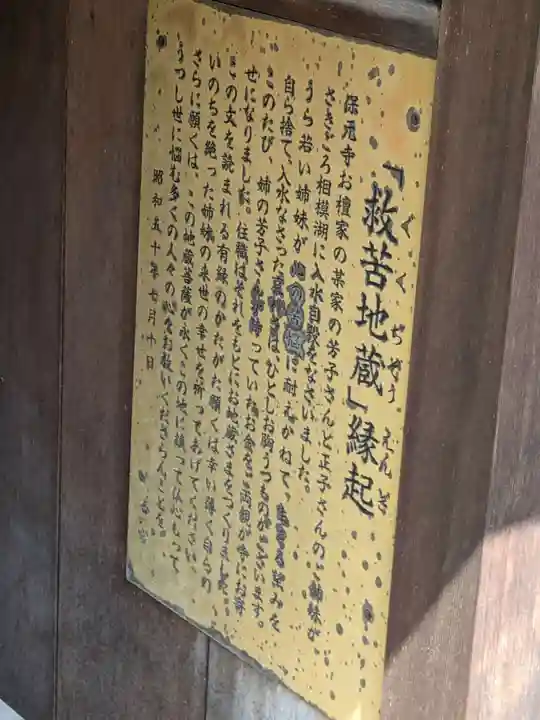 「救苦地蔵」縁起
くくぢぞう えんぎ
保元寺お檀家の某家の芳子さんと正子さんのご姉妹が、
さきごろ相模湖に入水自殺をなさいました。
うら若い姉妹が に耐えかねて、 望みを
自ら捨て、入水なさった はひとしお胸うつものがございます。
このたび、姉の芳子さんが持っていたお金をご両親が寺にお寄
せになりました。住職はそれをもとにお地蔵さまをつくりました。
この文を読まれる有縁のかたがた願くは幸い薄く自らの
いのちを絶った姉妹の来世の幸せを祈ってあげてください。
さらに願くは、この地蔵菩薩が永くこの地に
うつし世に悩む多くの人々の心をお救いくださらんことを。
昭和五十年七月十日